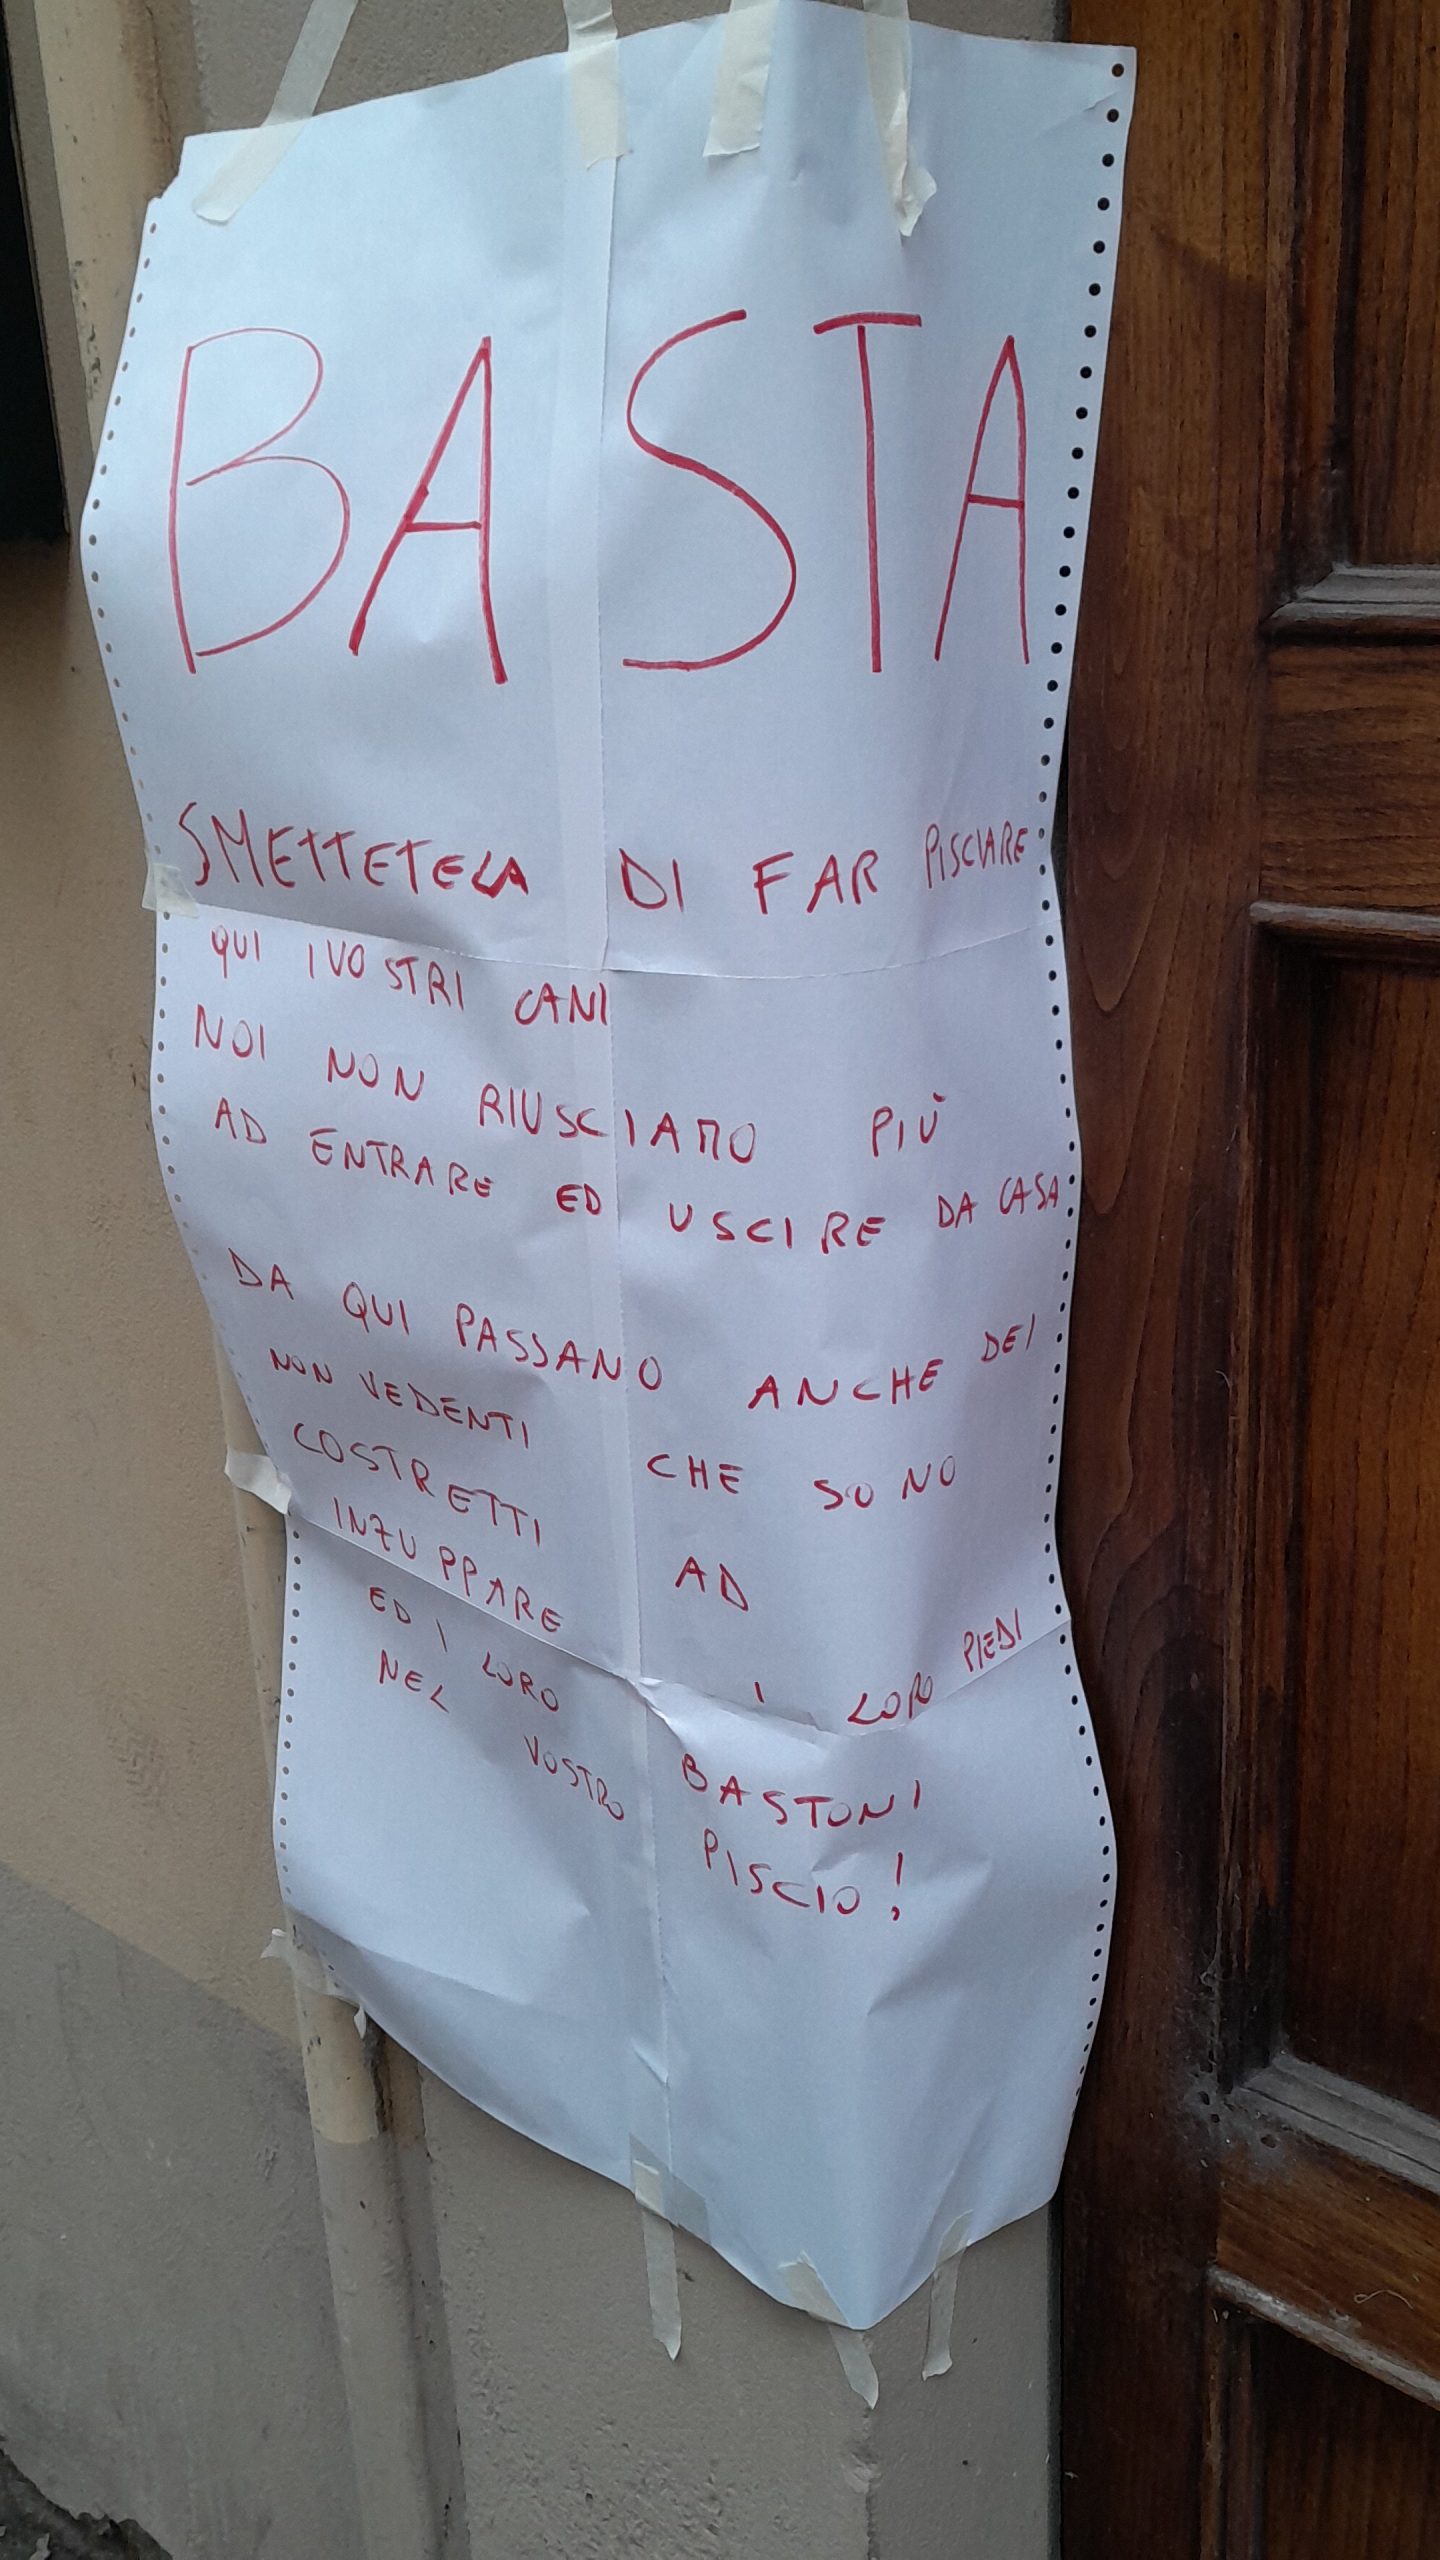 BASTA
SMETTETELA DI FAR PISCIARE
QUI I VOSTRI CANI
NOI NON RIUSCIAMO PIÙ
AD ENTRARE ED USCIRE DA CASA
DA QUI PASSANO ANCHE DEI
NON VEDENTI CHE SONO
COSTRETTI AD
INZUPPARE I LORO PIEDI
ED I LORO BASTONI
NEL VOSTRO PISCIO!